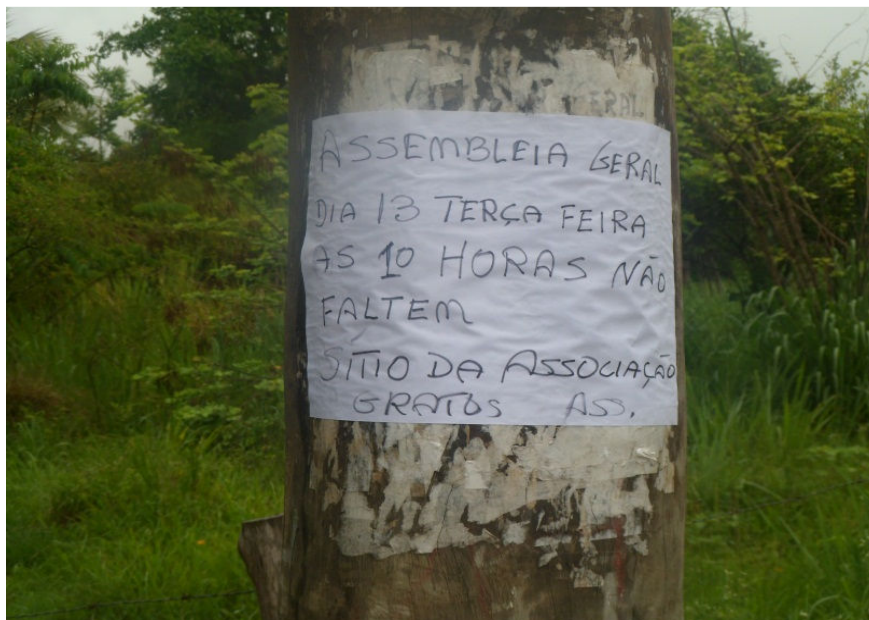 ERAL
ASSEMBLEIA GERAL
DIA 13 TERÇA FEIRA
AS 10 HORAS NÃO
FALTEM
SÍTIO DA ASSOCIAÇÃO
GRATOS ASS.